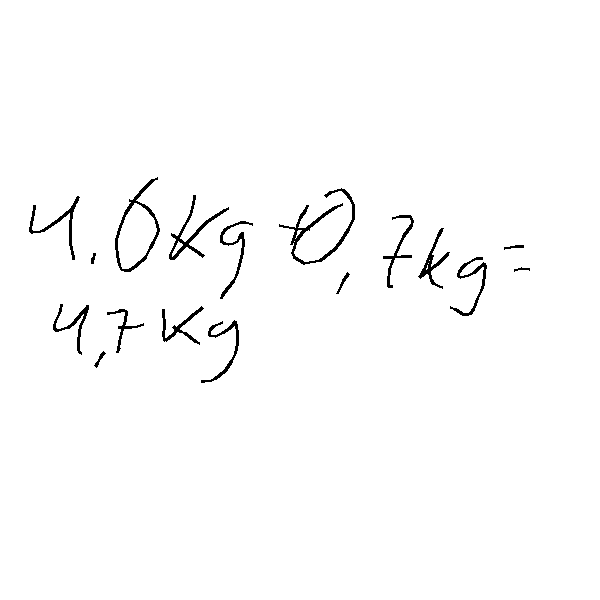 4.0kg +0,7kg=
4,7kg